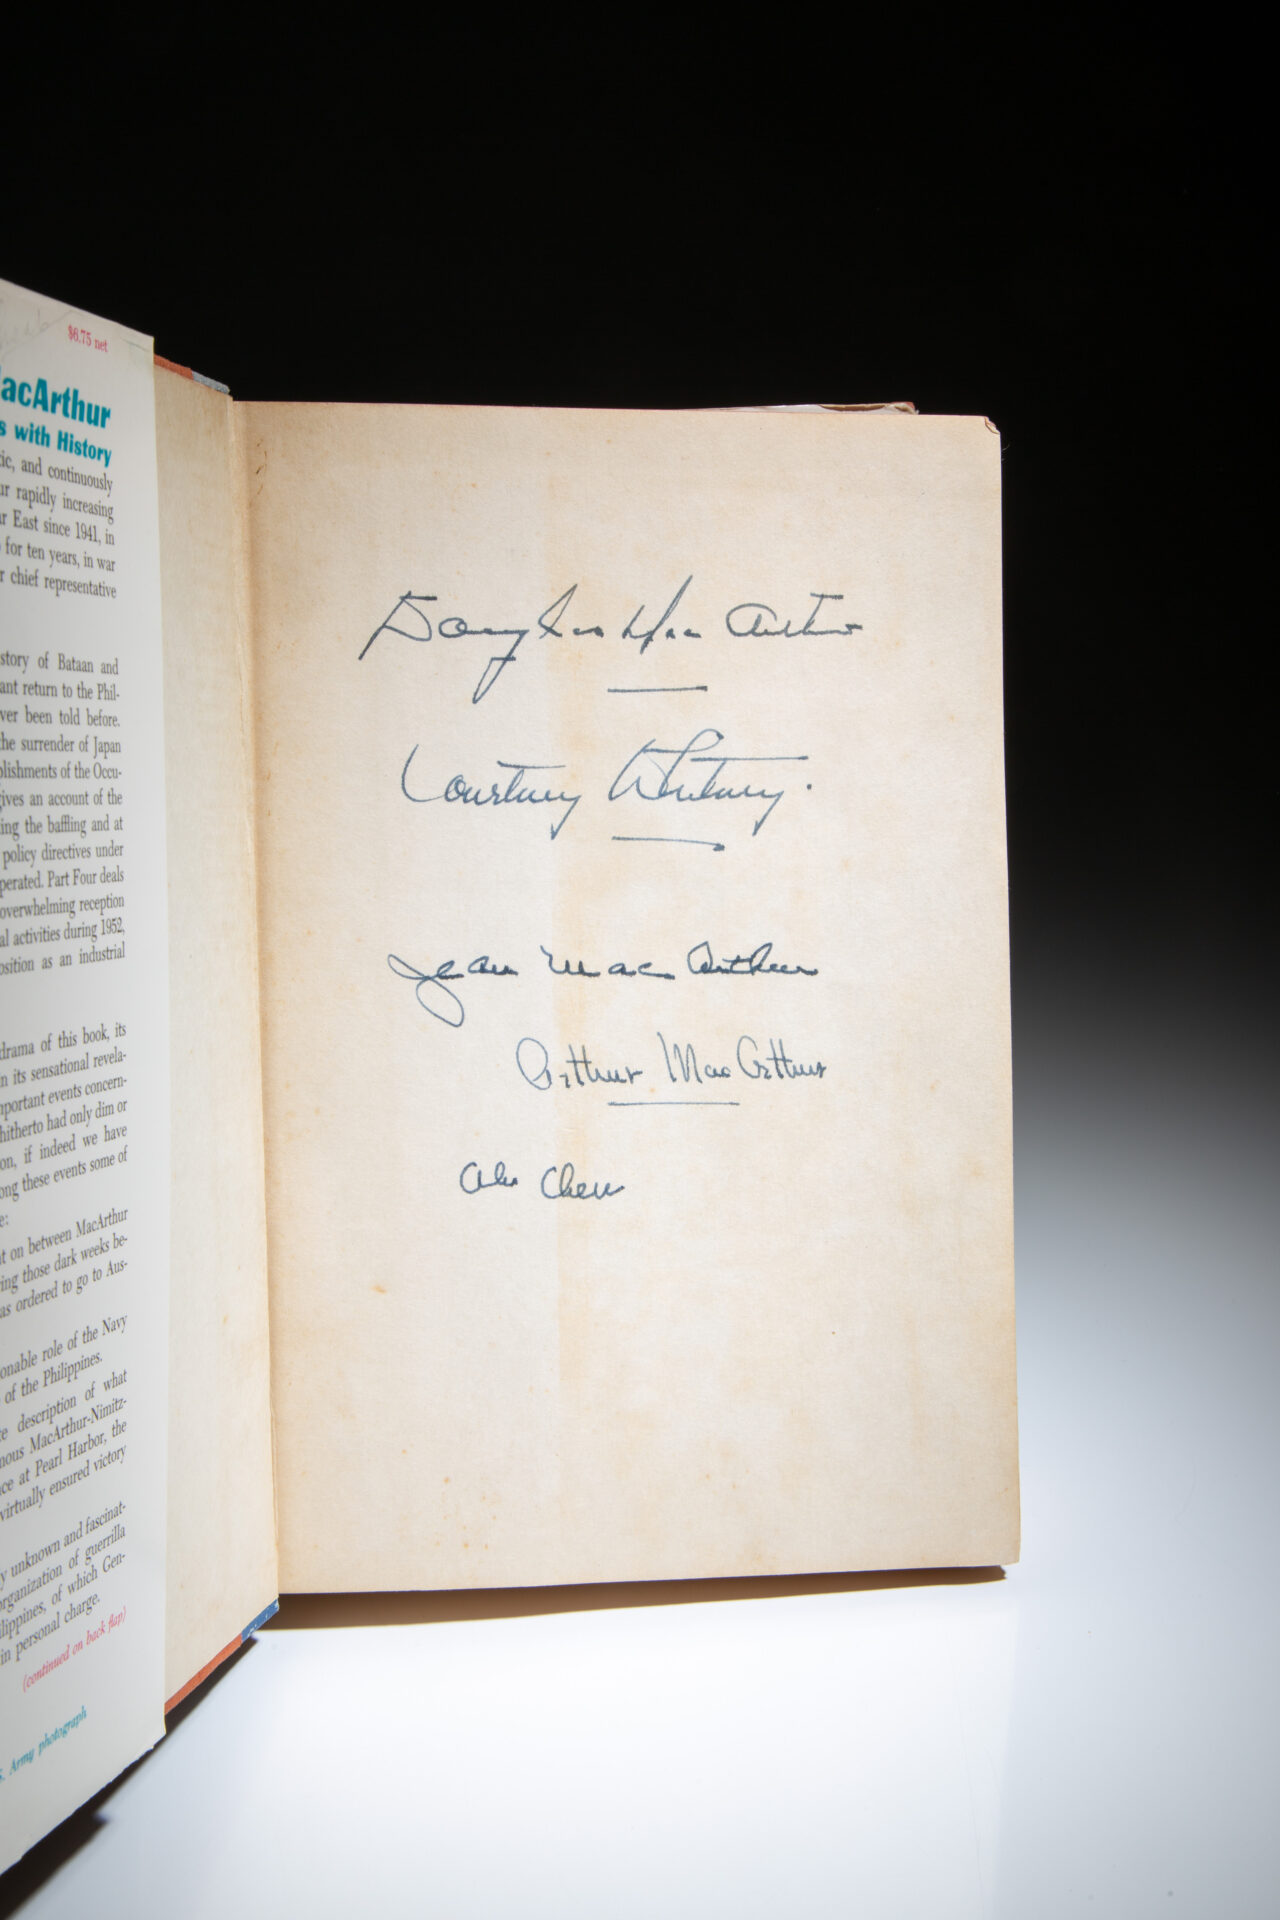 $6.75 net
acArthur
s with History
ic, and continuously
ur rapidly increasing
r East since 1941, in
for ten years, in war
r chief representative
story of Bataan and
ant return to the Phil-
ver been told before.
the surrender of Japan
plishments of the Occu-
gives an account of the
ing the baffling and at
policy directives under
perated. Part Four deals
overwhelming reception
al activities during 1952,
osition as an industrial
drama of this book, its
n its sensational revela-
nportant events concern-
hitherto had only dim or
on, if indeed we have
ong these events some of
e:
nt on between MacArthur
ring those dark weeks be-
as ordered to go to Aus-
onable role of the Navy
of the Philippines.
e description of what
mous MacArthur-Nimitz-
ce at Pearl Harbor, the
virtually ensured victory
y unknown and fascinat-
organization of guerrilla
ilippines, of which Gen-
in personal charge.
(continued on back flap)
S. Army photograph
Douglas MacArthur
Courtney Whitney.
Jean MacArthur
Arthur MacArthur
Ah Cheu